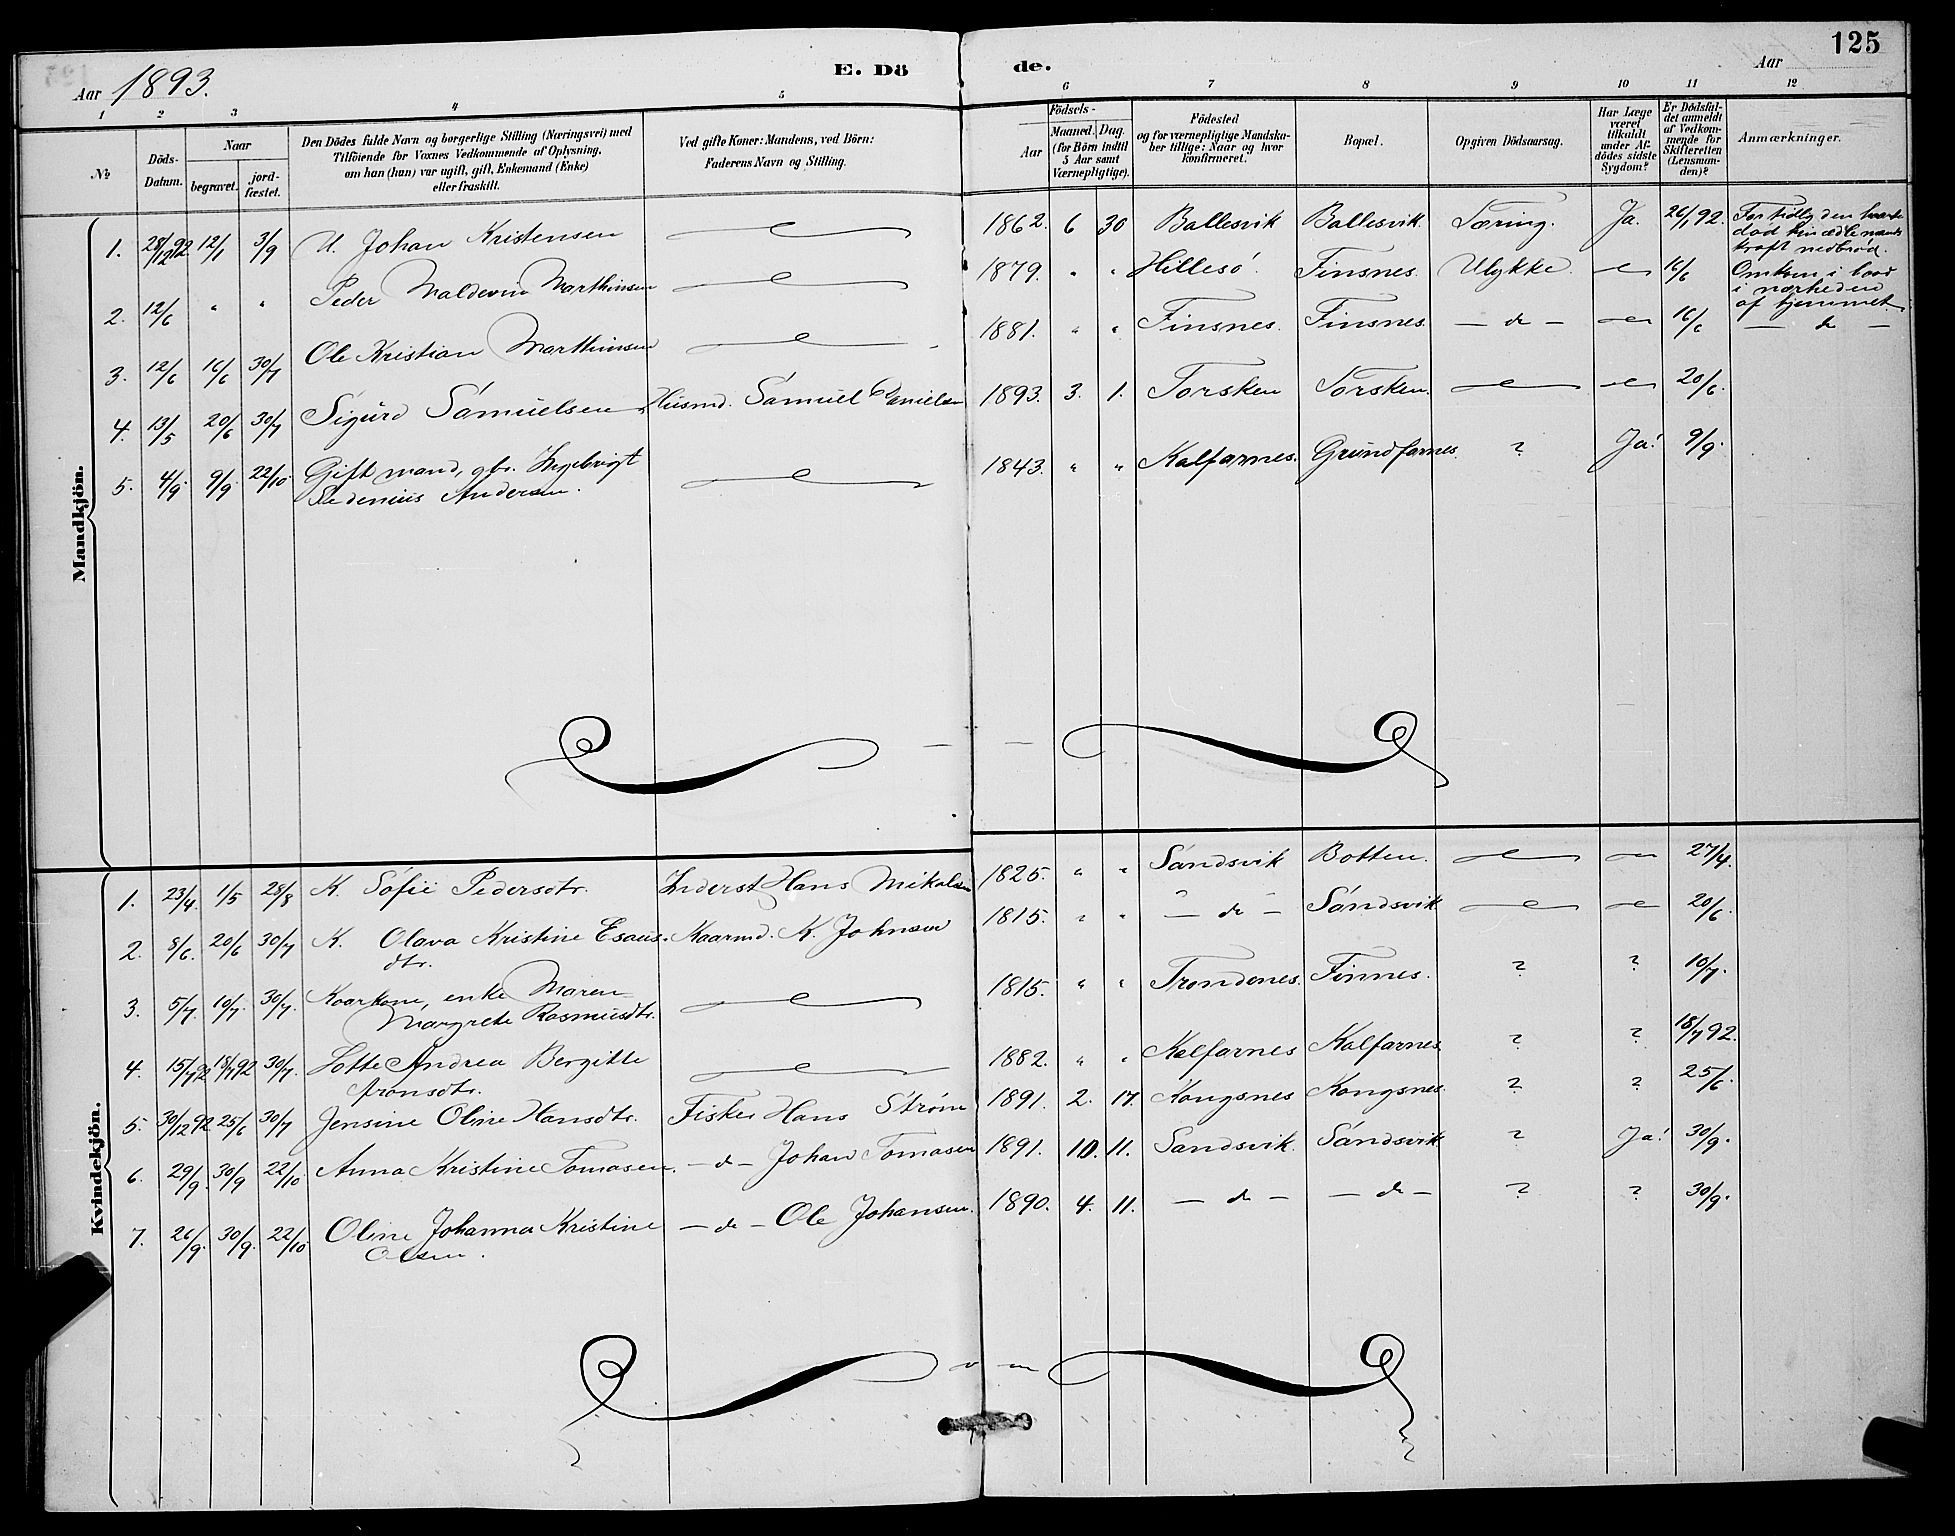 125
Aar 1893.
E. Dö de.
Aar
1 2 3 4 5 6 7 8 9 10 11 12
№
Döds-
Datum.
Naar
begravet.
jord-
fæstet.
Den Dödes fulde Navn og borgerlige Stilling (Næringsvei) med
Tilföiende for Voxnes Vedkommende af Oplysning,
om han (hun) var ugift, gift, Enkemand (Enke)
eller fraskilt.
Ved gifte Koner: Mandens, ved Börn:
Faderens Navn og Stilling.
Födsels-
Aar
Maaned. Dag.
(for Börn indtil
5 Aar samt
Værnepligtige).
Födested
og for værnepligtige Mandska-
ber tillige: Naar og hvor
konfirmeret.
Bopæl.
Opgiven Dödsaarsag.
Har Læge
været
tilkaldt
under Af-
dödes sidste
Sygdom?
Er Dödsfal-
det anmeldt
af Vedkom-
mende for
Skifteretten
(Lensman-
den)?
Anmærkninger.
Mandkjön.
1. 28/12 92 12/1 3/9 U. Johan Kristensen 1862. 6 30 Ballesvik Ballesvik Tæring. Ja. 26/1 92. For tidlig den
kraft nedbrød.
2. 12/6 " " Peder Maldevin Marthinsen 1879. " " Hillesö. Finsnes. Ulykke. 16/6 Omkom i baad
i nærheden
af hjemmet.
3. 12/6 16/6 30/7 Ole Kristian Marthinsen 1881. " " Finsnes. Finsnes. - do - 16/6 - do -
4. 13/5 20/6 30/7 Sigurd Samuelsen Husmd. Samuel Danielsen 1893. 3. 1. Torsken Torsken. 20/6.
5. 4/9. 9/9. 22/10. Gift mand, gbr. Ingebrigt
Pedenius Andersen. 1843. " " Kalfarnes. Grundfarnes. ? Ja! 9/9.
Kvindekjön.
1. 23/4. 1/5 28/8 K. Sofie Pedersdtr. Inderst Hans Mikalsen 1825. " " Sandsvik Botten. 27/4.
2. 8/6. 20/6 30/7 K. Olava Kristine Esaus-
dtr. Kaarmd. K. Johnsen 1815. " " - do - Sandsvik 20/6.
3. 5/7. 10/7. 30/7. Kaarkone, enke Maren
Margrete Rasmusdtr. 1815. " " Trondenes. Finnes. ? ? 10/7.
4. 15/7 92 18/7 92 30/7. Lotte Andrea Bergitte
Aronsdtr. 1882. " " Kalfarnes Kalfarnes ? ? 18/7 92.
5. 30/12 92 25/6 30/7 Jensine Oline Hansdtr. Fisker Hans Strøm 1891. 2. 17. Kongsnes Kongsnes. ? ? 25/6.
6. 29/9. 30/9 22/10 Anna Kristine Tomasen. - do - Johan Tomasen 1891. 10. 11. Sandsvik. Sandsvik ? Ja! 30/9.
7. 26/9. 30/9. 22/10 Oline Johanna Kristine
Olsen. - do - Ole Johansen. 1890. 4. 11. - do - - do - ? ? 30/9.